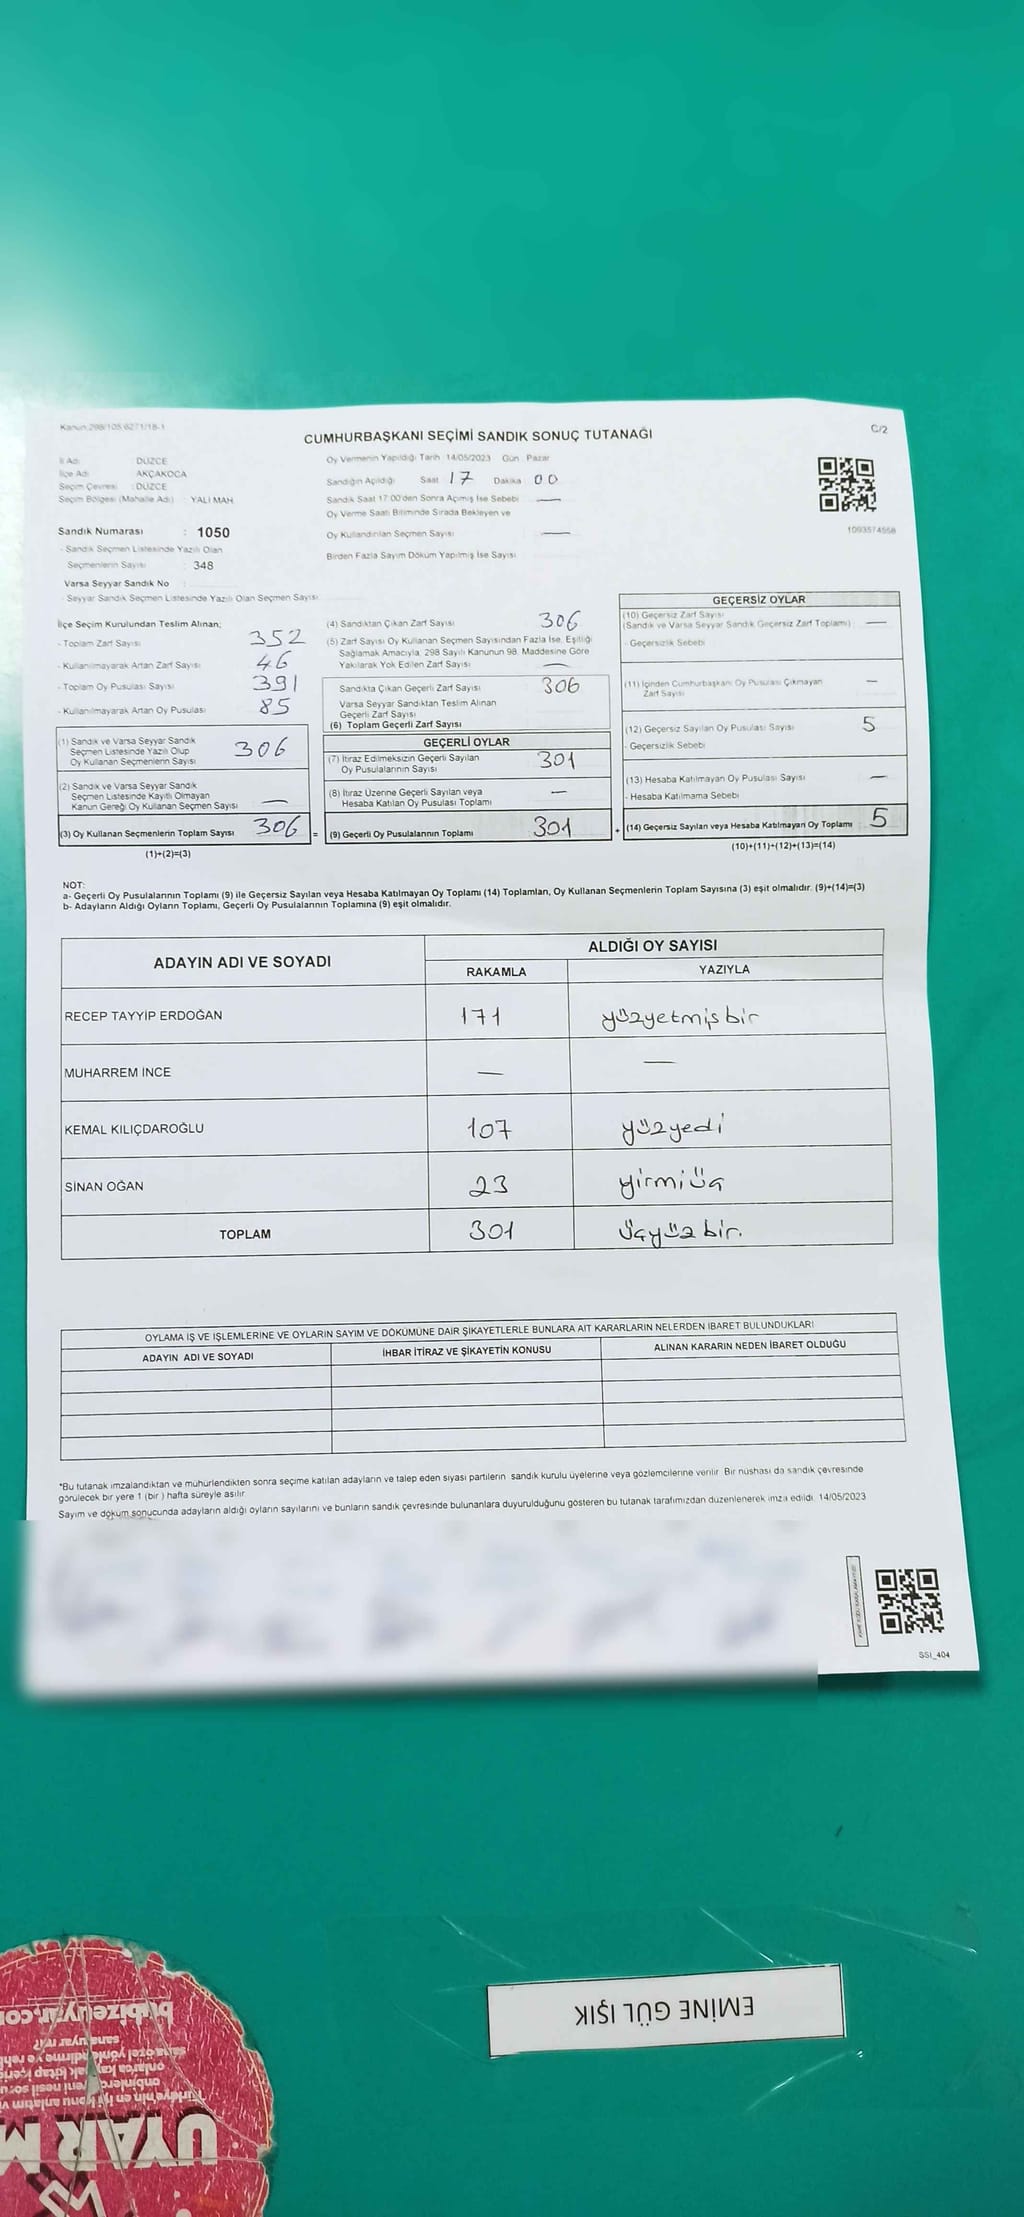 Kanun:298/105,6271/18-1
CUMHURBAŞKANI SEÇİMİ SANDIK SONUÇ TUTANAĞI
C/2
İl Adı : DÜZCE
İlçe Adı : AKÇAKOCA
Seçim Çevresi : DÜZCE
Seçim Bölgesi (Mahalle Adı) : YALI MAH.
Oy Vermenin Yapıldığı Tarih :14/05/2023 Gün : Pazar
Sandığın Açıldığı Saat 17 Dakika 00
Sandık Saat 17:00'den Sonra Açımış İse Sebebi —
Oy Verme Saati Bitiminde Sırada Bekleyen ve
Oy Kullandırılan Seçmen Sayısı —
Birden Fazla Sayım Döküm Yapılmış İse Sayısı
1093574558
Sandık Numarası : 1050
- Sandık Seçmen Listesinde Yazılı Olan
Seçmenlerin Sayısı : 348
Varsa Seyyar Sandık No :
- Seyyar Sandık Seçmen Listesinde Yazılı Olan Seçmen Sayısı
İlçe Seçim Kurulundan Teslim Alınan;
- Toplam Zarf Sayısı 352
- Kullanılmayarak Artan Zarf Sayısı 46
- Toplam Oy Pusulası Sayısı 391
- Kullanılmayarak Artan Oy Pusulası 85
(1) Sandık ve Varsa Seyyar Sandık
Seçmen Listesinde Yazılı Olup
Oy Kullanan Seçmenlerin Sayısı 306
(2) Sandık ve Varsa Seyyar Sandık
Seçmen Listesinde Kayıtlı Olmayan
Kanun Gereği Oy Kullanan Seçmen Sayısı —
(3) Oy Kullanan Seçmenlerin Toplam Sayısı 306 =
(1)+(2)=(3)
(4) Sandıktan Çıkan Zarf Sayısı 306
(5) Zarf Sayısı Oy Kullanan Seçmen Sayısından Fazla İse, Eşitliği
Sağlamak Amacıyla, 298 Sayılı Kanunun 98. Maddesine Göre
Yakılarak Yok Edilen Zarf Sayısı —
Sandıkta Çıkan Geçerli Zarf Sayısı 306
Varsa Seyyar Sandıktan Teslim Alınan
Geçerli Zarf Sayısı
(6) Toplam Geçerli Zarf Sayısı
GEÇERLİ OYLAR
(7) İtiraz Edilmeksizin Geçerli Sayılan
Oy Pusulalarının Sayısı 301
(8) İtiraz Üzerine Geçerli Sayılan veya
Hesaba Katılan Oy Pusulası Toplamı —
(9) Geçerli Oy Pusulalarının Toplamı 301 +
GEÇERSİZ OYLAR
(10) Geçersiz Zarf Sayısı
(Sandık ve Varsa Seyyar Sandık Geçersiz Zarf Toplamı) —
- Geçersizlik Sebebi
(11) İçinden Cumhurbaşkanı Oy Pusulası Çıkmayan
Zarf Sayısı —
(12) Geçersiz Sayılan Oy Pusulası Sayısı 5
- Geçersizlik Sebebi
(13) Hesaba Katılmayan Oy Pusulası Sayısı —
- Hesaba Katılmama Sebebi
(14) Geçersiz Sayılan veya Hesaba Katılmayan Oy Toplamı 5
(10)+(11)+(12)+(13)=(14)
NOT:
a- Geçerli Oy Pusulalarının Toplamı (9) ile Geçersiz Sayılan veya Hesaba Katılmayan Oy Toplamı (14) Toplamları, Oy Kullanan Seçmenlerin Toplam Sayısına (3) eşit olmalıdır. (9)+(14)=(3)
b- Adayların Aldığı Oyların Toplamı, Geçerli Oy Pusulalarının Toplamına (9) eşit olmalıdır.
ADAYIN ADI VE SOYADI
ALDIĞI OY SAYISI
RAKAMLA YAZIYLA
RECEP TAYYİP ERDOĞAN 171 yüzyetmişbir
MUHARREM İNCE — —
KEMAL KILIÇDAROĞLU 107 yüzyedi
SİNAN OĞAN 23 yirmiüç
TOPLAM 301 üçyüzbir.
OYLAMA İŞ VE İŞLEMLERİNE VE OYLARIN SAYIM VE DÖKÜMÜNE DAİR ŞİKAYETLERLE BUNLARA AİT KARARLARIN NELERDEN İBARET BULUNDUKLARI
ADAYIN ADI VE SOYADI İHBAR İTİRAZ VE ŞİKAYETİN KONUSU ALINAN KARARIN NEDEN İBARET OLDUĞU
*Bu tutanak imzalandıktan ve mühürlendikten sonra seçime katılan adayların ve talep eden siyasi partilerin sandık kurulu üyelerine veya gözlemcilerine verilir. Bir nüshası da sandık çevresinde
görülecek bir yere 1 (bir ) hafta süreyle asılır.
Sayım ve döküm sonucunda adayların aldığı oyların sayılarını ve bunların sandık çevresinde bulunanlara duyurulduğunu gösteren bu tutanak tarafımızdan düzenlenerek imza edildi. 14/05/2023
SSI_404
EMİNE GÜL IŞIK
UYAR M
Türkiye'nin en iyi konu anlatım
onbinlerce yeni nesil soru
onlarca kaynak kitap içeriği
sana özel yönlendirme ve
sana uyar mı?
bubizeuyar.com